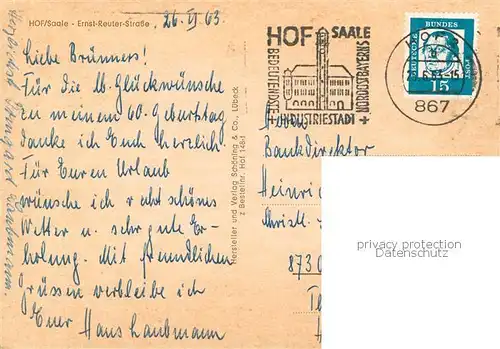 HOF/Saale - Ernst-Reuter-Straße
26. VI 63
Liebe Brünners!
Für die lb. Glückwünsche
zu meinem 60. Geburtstag
danke ich Euch herzlich.
Für Euren Urlaub
wünsche ich recht schönes
Wetter u. sehr gute Er-
holung. Mit freundlichen
Grüssen verbleibe ich
Euer Hans Laubmann
Herzlichst Irmgard Laubmann.
Hersteller und Verlag Schöning & Co., Lübeck
z Bestellnr. Hof 1481
HOF SAALE
BEDEUTENDSTE
INDUSTRIESTADT
NORDOSTBAYERNS
DEUTSCHE
BUNDES
POST
15
867
Bankdirektor
Heinri
Christl.
8730
privacy protection
Datenschutz